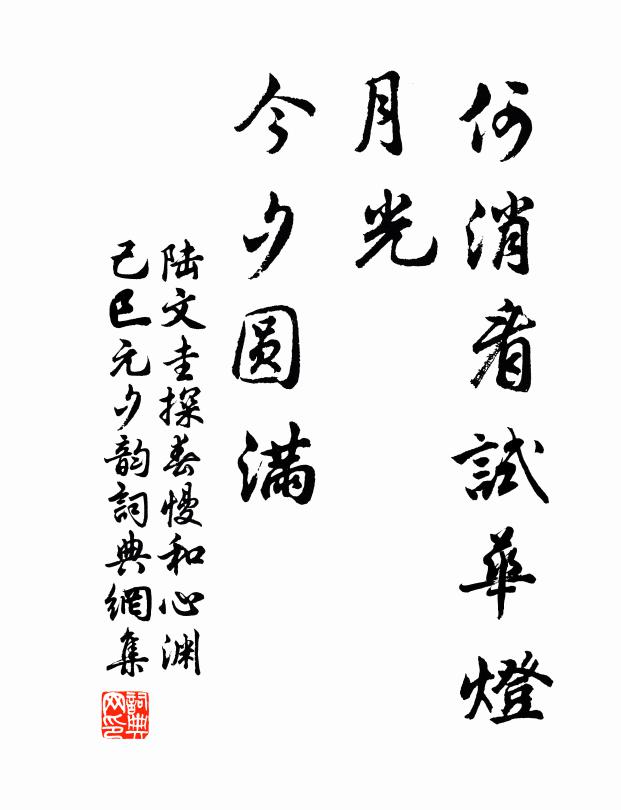 何消看試華燈
月光
今夕圆滿
陆文圭探春慢和心渊
己巳元夕韵詞典網集
詞典网印